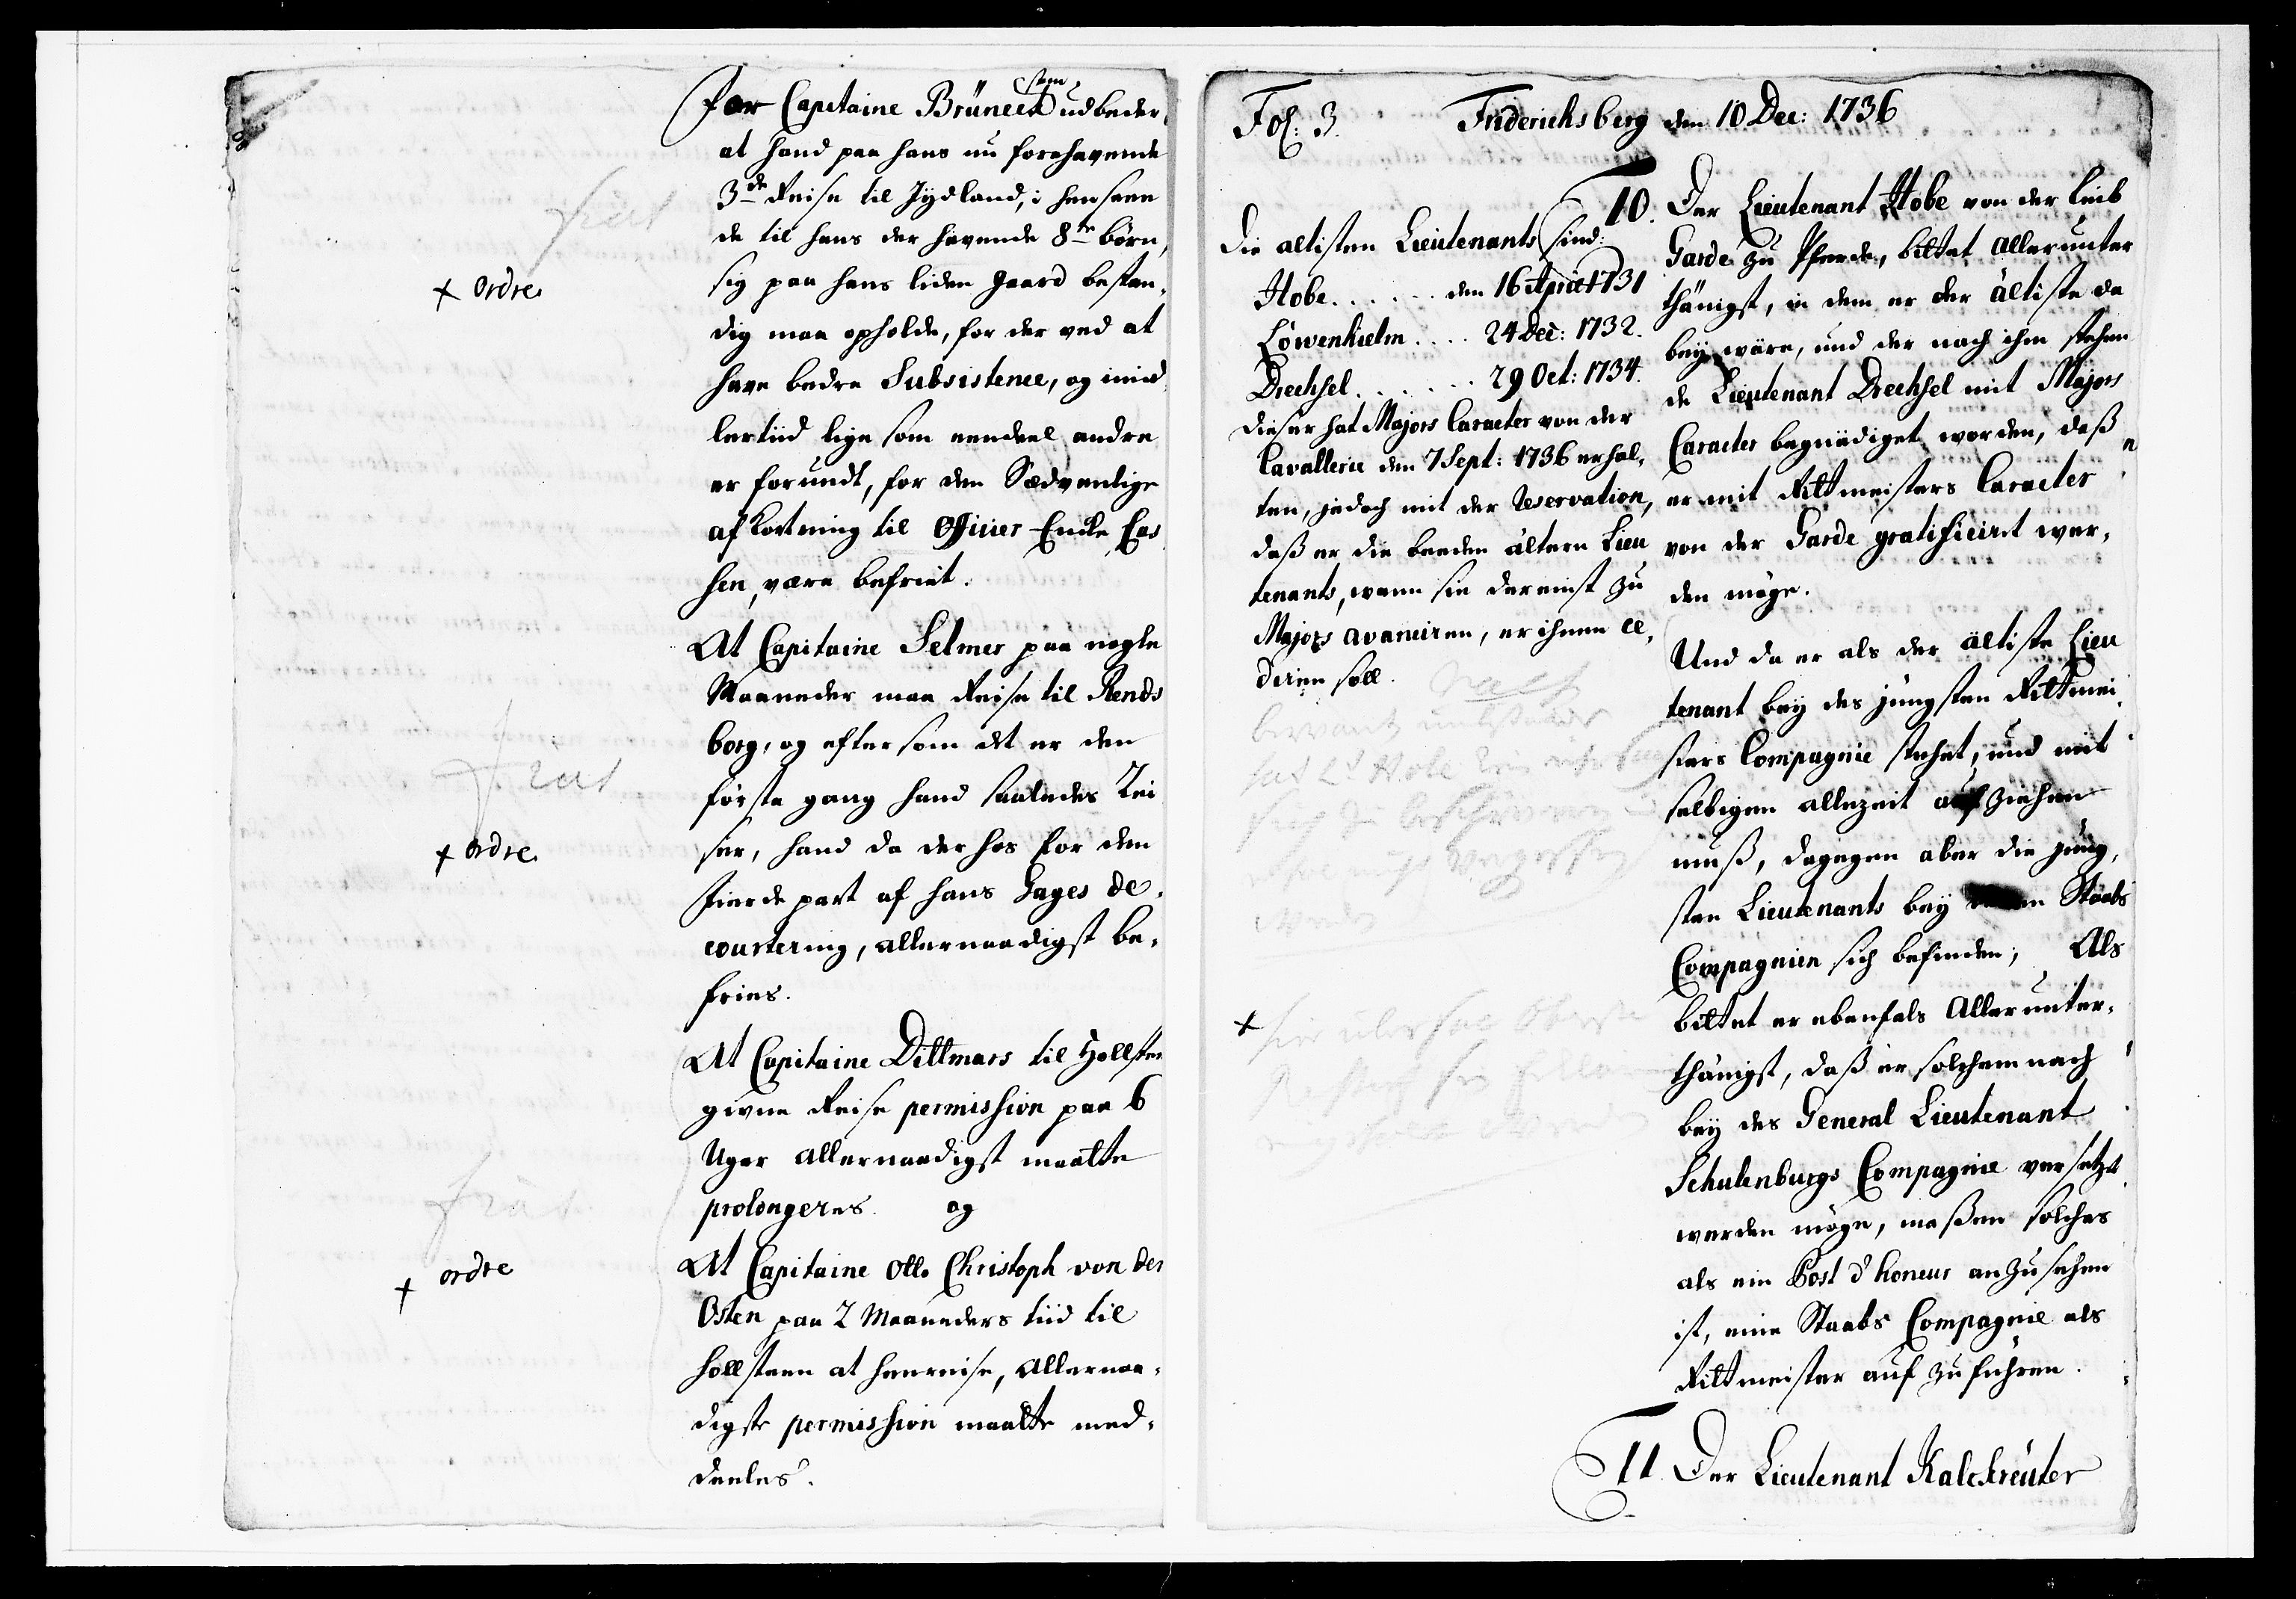 For Capitaine Brüneck som udbeder
at hand paa hans nu forehavende
3de Reise til Jydland, i henseen
de til hans der havende 8te børn,
sig paa hans liden gaard bestan,
dig maa opholde, for der ved at
have bedre Subsistence, og imid
lertiid lige som eendeel andre
er forundt, for den Sædvenlige
afkortning til Officier Encke Cas
sen, være befriet.
At Capitaine Selmer paa nogle
Maaneder maa Reise til Rends
borg, og efter som det er den
første gang hand saaledes Rei
ser, hand da der hos for den
fierde part af hans Gages de,
courtering, allernaadigst be,
fries.
At Capitaine Dittmars til Hollsten
givne Reise permission paa 6
Uger allernaadigst maatte
prolongeres. og
At Capitaine Otto Christoph von der
Osten paa 2 Maaneders tiid til
Hollsteen at henreise, allernaa,
digste permission maatte med,
deeles.
fiat
+ ordre
fiat
+ ordre
fiat
+ ordre
Fol: 3. Friderichsberg den 10 Dec: 1736
die altisten Lieutenants sind:
Hobe . . . . . . den 16 April 1731
Löwenhielm . . . . 24 Dec: 1732.
Drechsel . . . . . . . 29 Oct: 1734.
dieser hat Majors Caracter von der
Cavallerie den 7 Sept: 1736 erhal,
ten, jedoch mit der Reservation,
daß er die beeden ältern Lieu
tenants, wann sie dereinst zu
Majors avanciren, er ihnen ce,
diren soll.
+
10. Der Lieutenant Hobe von der Leib
Garde zu Pferde, bittet allerunter
thänigst, in dem er der ältiste da
bey wäre, und der nach ihm stehen
de Lieutenant Drechsel mit Majors
Caracter begnädiget worden, daß
er mit Rittmeisters Caracter
von der Garde gratificirt wer,
den möge.
Und da er als der ältiste Lieu
tenant bey des jüngsten Rittmei
sters Compagnie stehet, und mit
selbigen allezeit auf ziehen
muß, dagegen aber die jüng,
sten Lieutenants bey Staabs
Compagnien sich befinden; Als
bittet er ebenfals allerunter,
thänigst, daß er solchemnach
bey des General Lieutenant
Schulenburgs Compagnie versetzt
werden möge, maßen solches
als ein Post d'honeur anzusehen
ist, eine Staabs Compagnie als
Rittmeister auf zu führen.
11. Der Lieutenant Kalckreuter